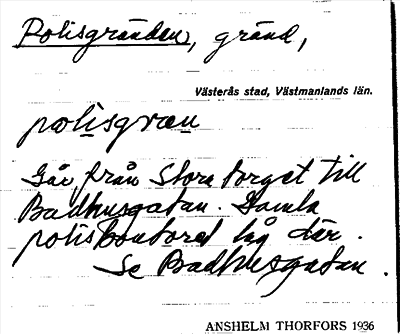 Polisgränden, gränd,
Västerås stad, Västmanlands län.
polisgræn
Går från Stora torget till
Badhusgatan. Gamla
poliskontoret låg där.
Se Badhusgatan.
ANSHELM THORFORS 1936